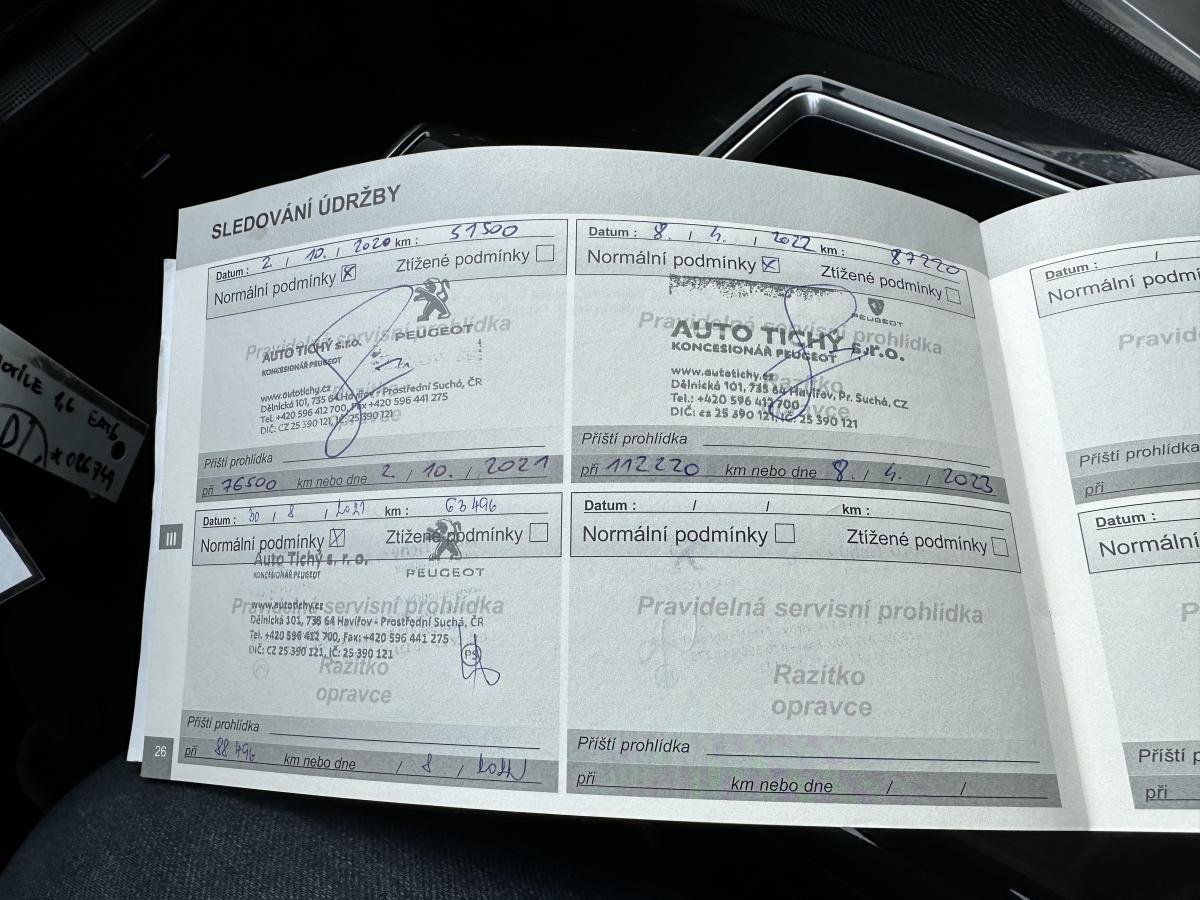 SLEDOVÁNÍ ÚDRŽBY
Datum : 2. / 10. / 2020 km : 51500
Normální podmínky Ztížené podmínky
Pravidelná servisní prohlídka
PEUGEOT
AUTO TICHÝ s.r.o.
KONCESIONÁŘ PEUGEOT
www.autotichy.cz
Dělnická 101, 735 64 Havířov - Prostřední Suchá, ČR
Tel. +420 596 412 700, Fax +420 596 441 275
DIČ: CZ 25 390 121, IČ: 25 390 121
Příští prohlídka
při 76500 km nebo dne 2. / 10. / 2021
Datum : 30 / 8 / 2021 km : 63496
Normální podmínky Ztížené podmínky
Auto Tichý s. r. o.
KONCESIONÁŘ PEUGEOT
PEUGEOT
Pravidelná servisní prohlídka
www.autotichy.cz
Dělnická 101, 735 64 Havířov - Prostřední Suchá, ČR
Tel. +420 596 412 700, Fax: +420 596 441 275
DIČ: CZ 25 390 121, IČ: 25 390 121
PS
Razítko
opravce
Příští prohlídka
při 88496 km nebo dne / 8 /
26
III
Datum : 8. / 4. / 2022 km : 87220
Normální podmínky Ztížené podmínky
PEUGEOT
Pravidelná servisní prohlídka
AUTO TICHÝ s.r.o.
KONCESIONÁŘ PEUGEOT
www.autotichy.cz
Razítko
Dělnická 101, 735 64 Havířov, Pr. Suchá, CZ
Tel.: +420 596 412 700
opravce
DIČ: cz 25 390 121, IČ: 25 390 121
Příští prohlídka
při 112220 km nebo dne 8. / 4. / 2023
Datum : / / km :
Normální podmínky Ztížené podmínky
Pravidelná servisní prohlídka
Razítko
opravce
Příští prohlídka
při km nebo dne / /
Datum : /
Normální podm
Pravid
Příští prohlídka
při
Datum :
Normální
P
Příští p
při
1,6
*086749